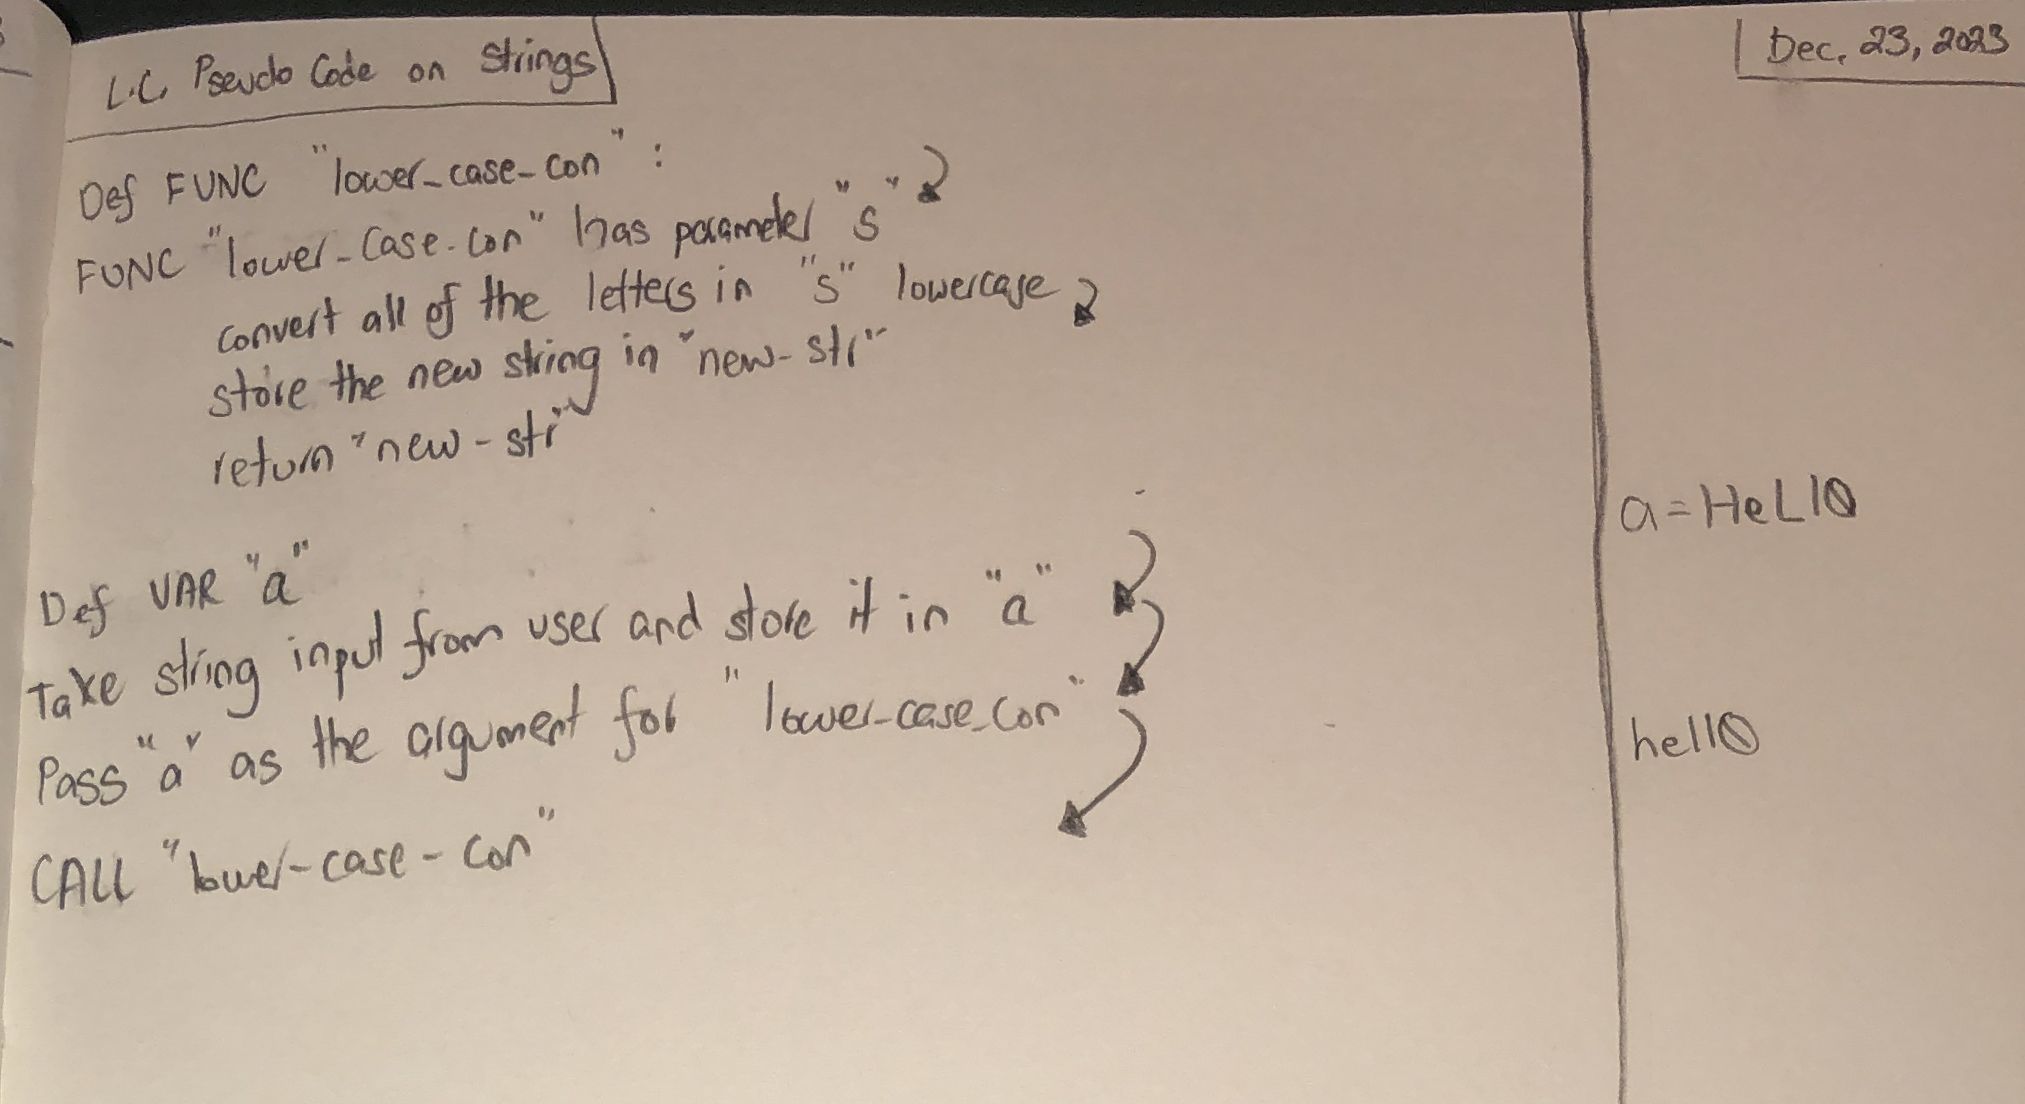 L.C. Pseudo Code on Strings
Dec. 23, 2023
Def FUNC "lower_case_con" :
FUNC "lower_case_con" has parameter "s"
convert all of the letters in "s" lowercase
store the new string in "new-str"
return "new-str"
a=HeLl0
Def VAR "a"
Take string input from user and store it in "a"
Pass "a" as the argument for "lower_case_con"
hell0
CALL "lower-case-con"